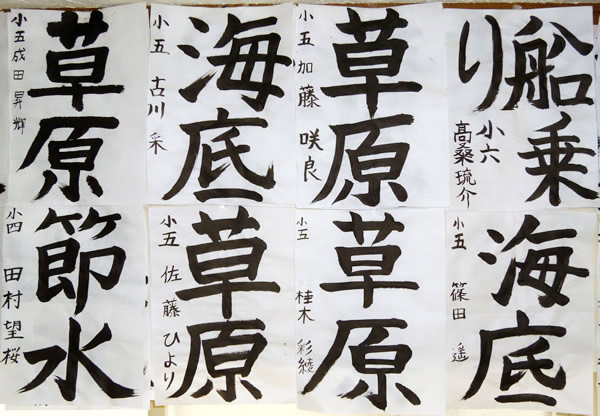 船乗り
小六 高桑琉介
草原
小五 加藤咲良
海底
小五 古川采
草原
小五 成田昇輝
海底
小五 篠田遥
草原
小五 桂木彩綾
草原
小五 佐藤ひより
節水
小四 田村望桜